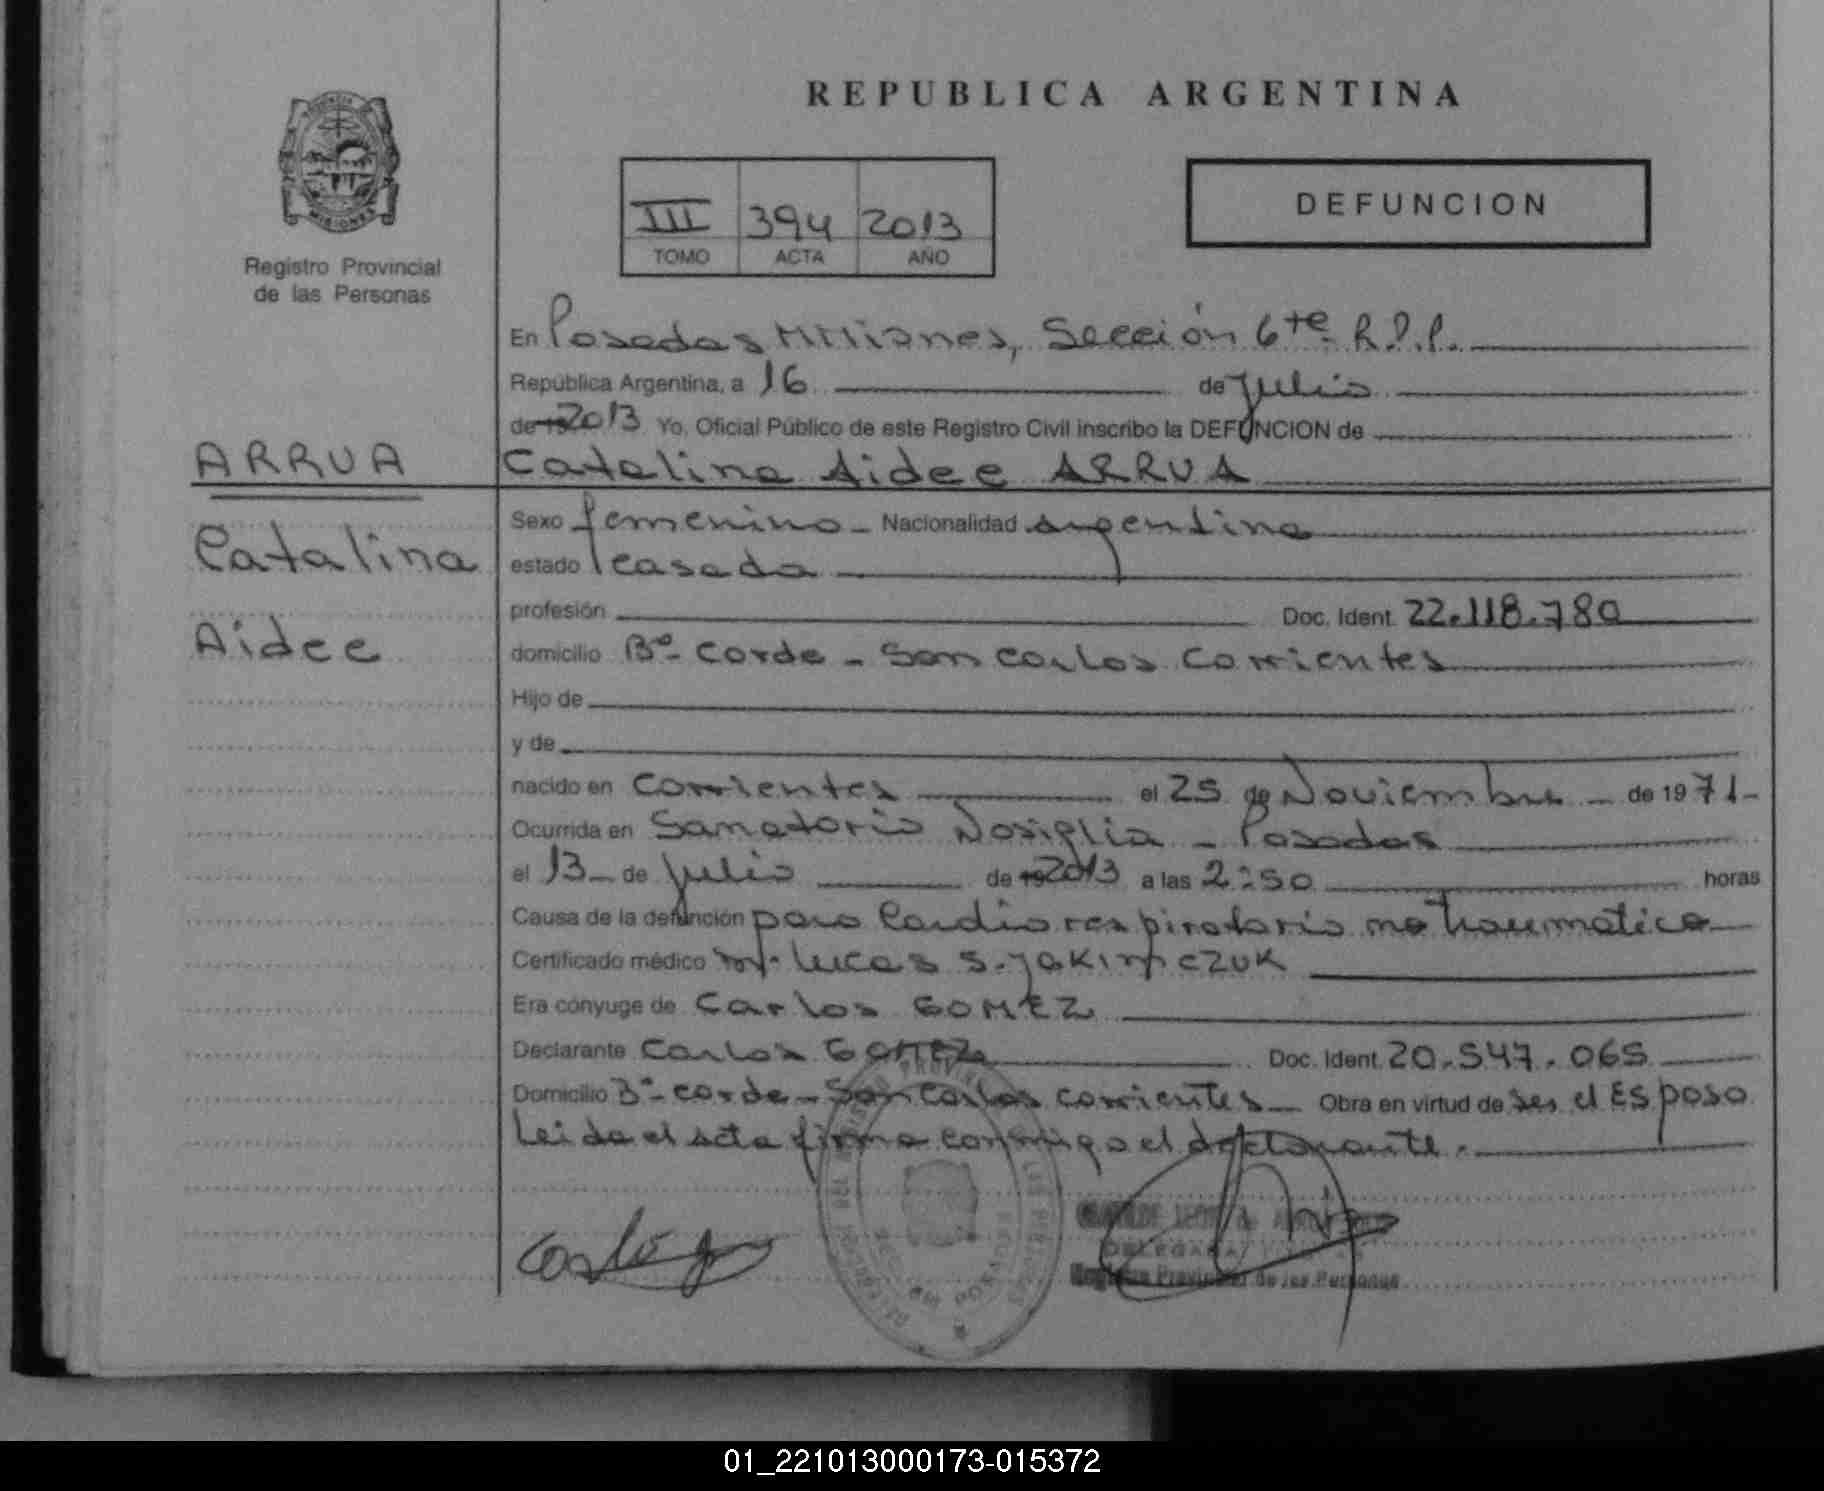 REPUBLICA ARGENTINA
MISIONES
Registro Provincial
de las Personas
III 394 2013
TOMO ACTA AÑO
DEFUNCION
En Posadas Misiones, Sección 6te R.P.P.
República Argentina, a 16 de Julio
de 19 2013 Yo, Oficial Público de este Registro Civil inscribo la DEFUNCION de
ARRUA
Catalina Aidee ARRUA
Catalina
Aidee
Sexo femenino - Nacionalidad argentina
estado casada
profesión Doc. Ident. 22.118.780
domicilio Bº- Corde - San Carlos Corrientes
Hijo de
y de
nacido en Corrientes el 25 de Noviembre - de 1971-
Ocurrida en Sanatorio Nosiglia - Posadas
el 13 - de Julio de 19 2013 a las 2:50 horas
Causa de la defunción paro Cardio respiratorio no traumatico
Certificado médico m. Lucas S. Jakimczuk
Era cónyuge de Carlos GOMEZ
Declarante Carlos GOMEZ Doc. Ident. 20.547.065
Domicilio Bº- Corde - San Carlos Corrientes - Obra en virtud de ser el Esposo
Leida el acta firma conmigo el declarante.
DELEGADA
Registro Provincial de las Personas
01_221013000173-015372